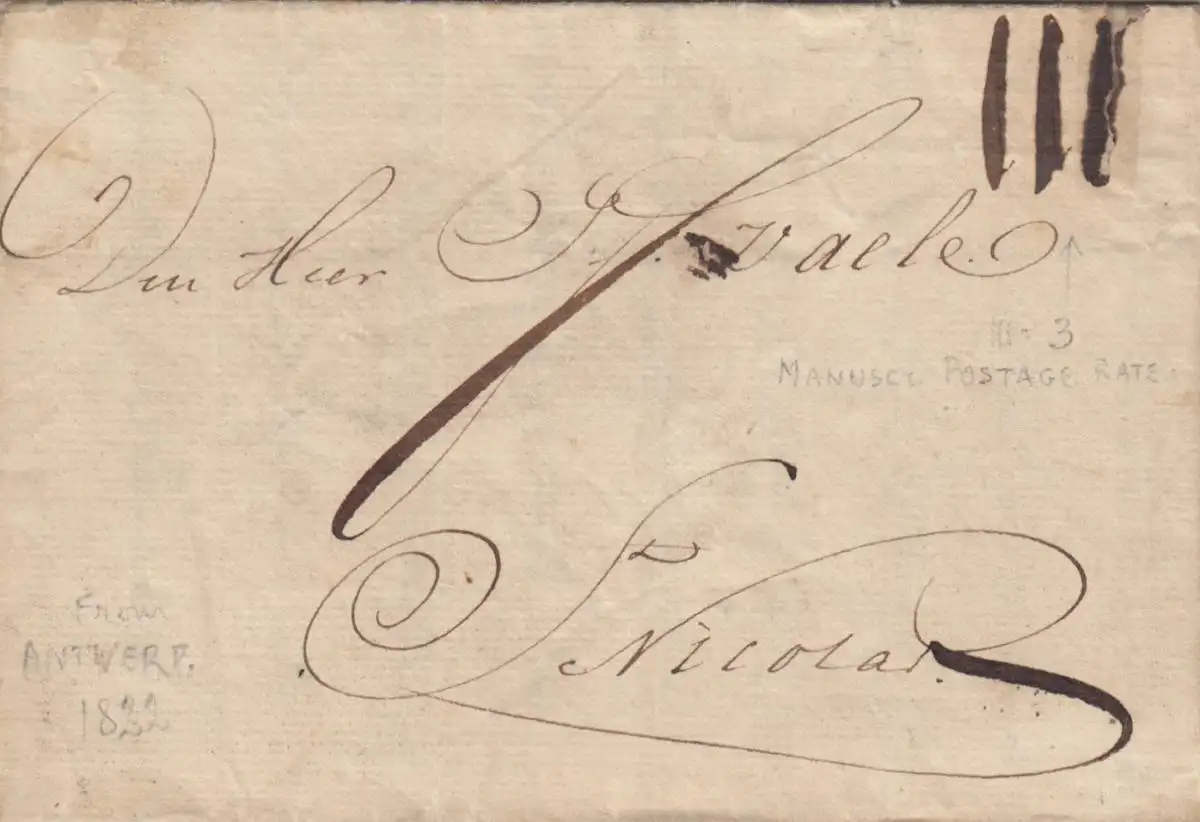 III
Den Heer vaele
III - 3
MANUSCT. POSTAGE RATE.
St Nicolas
From
ANTWERP.
1822